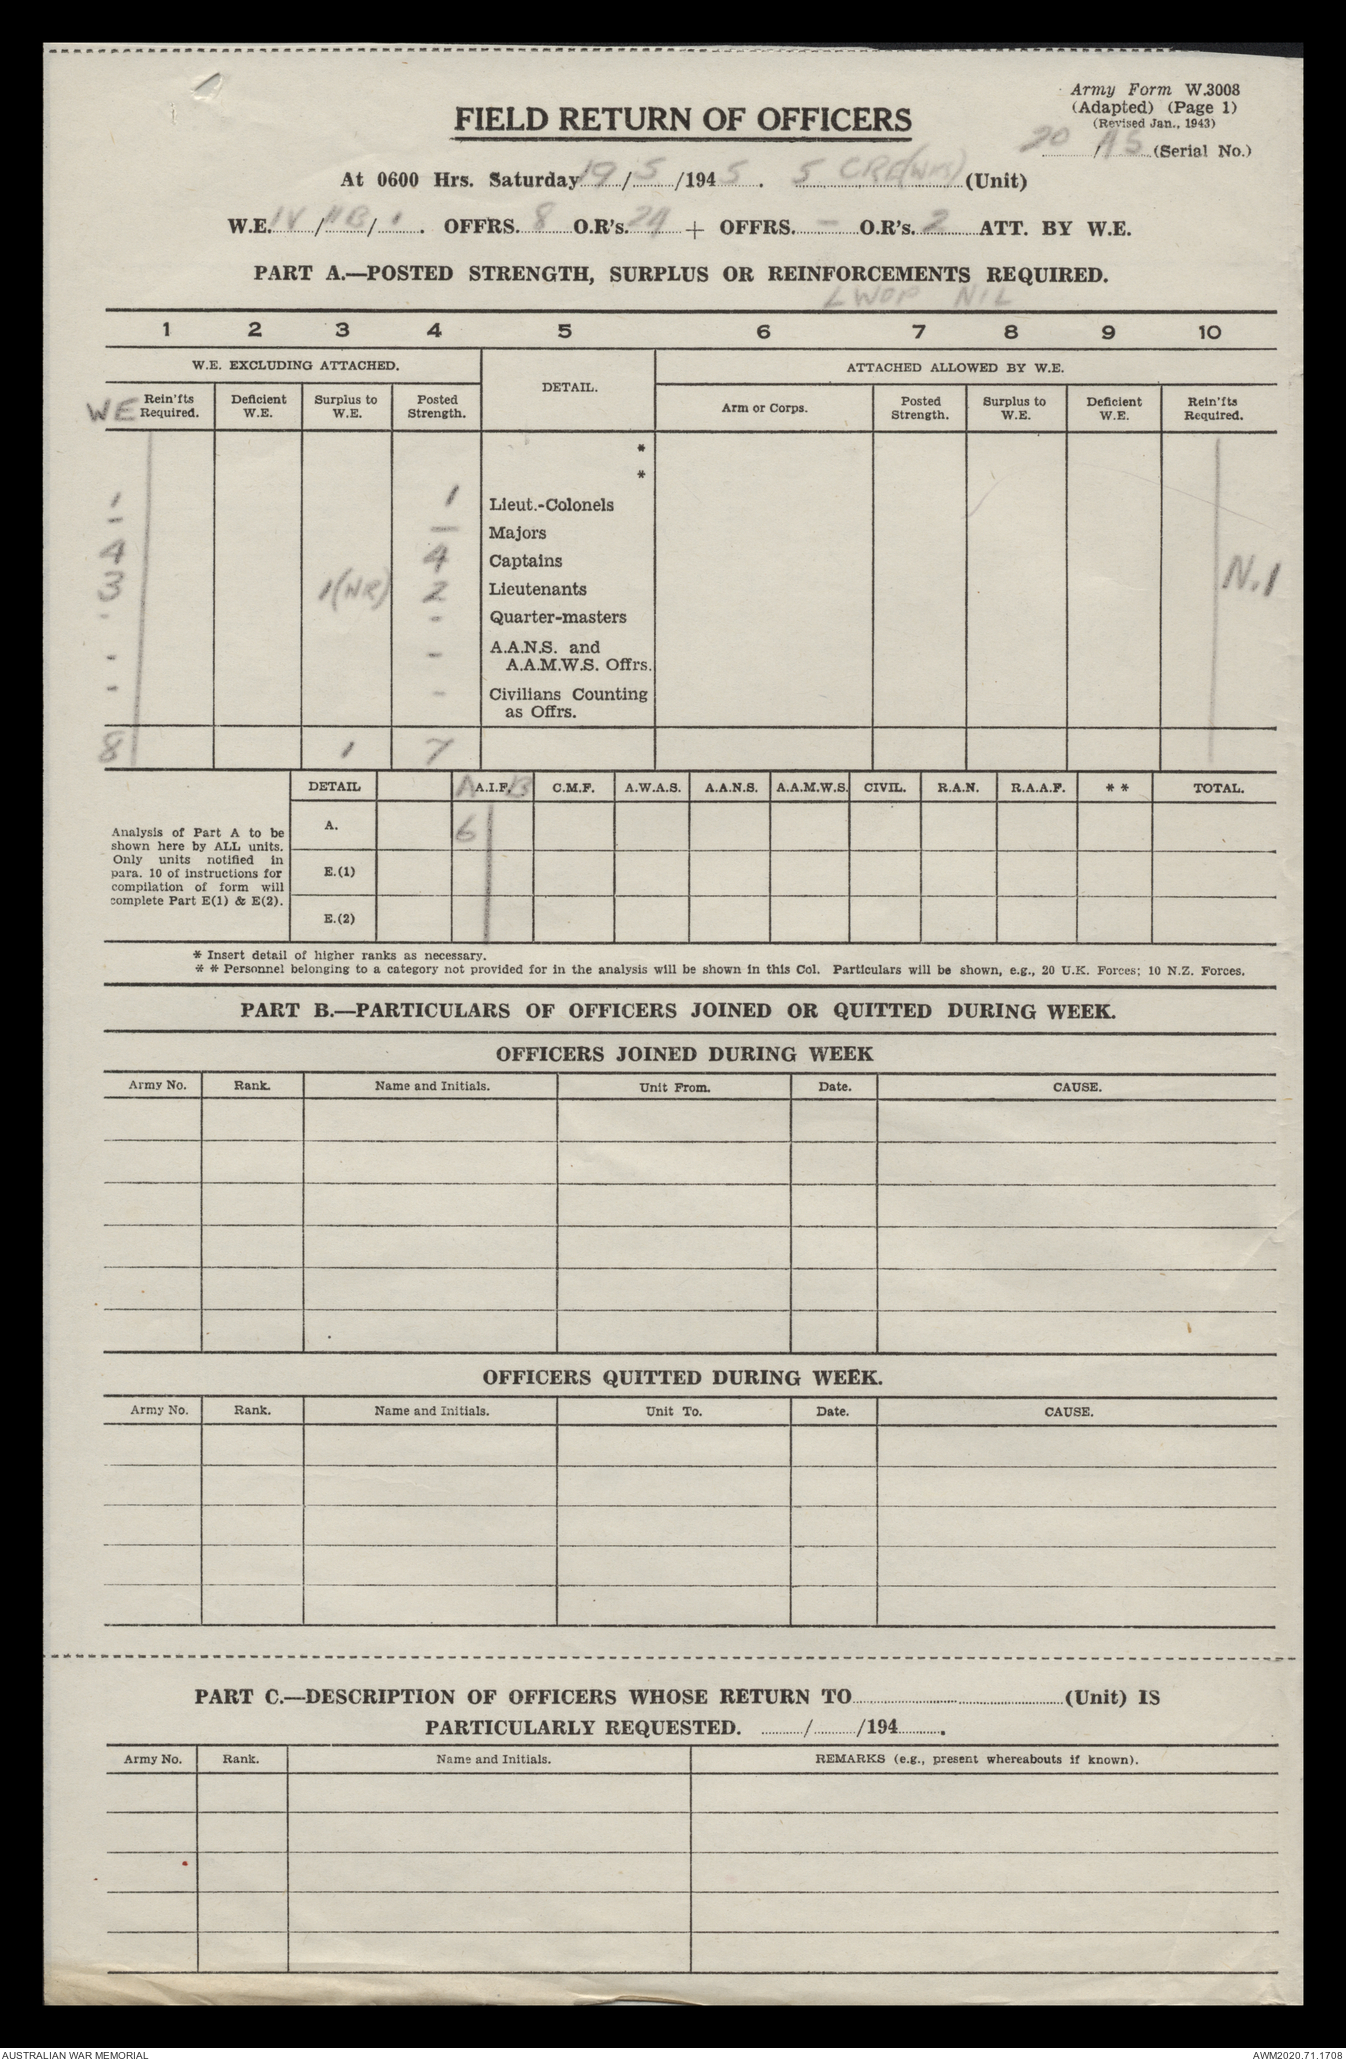 Army Form W.3008
(Adapted) (Page 1)
(Revised Jan., 1943)
FIELD RETURN OF OFFICERS
20 / AS (Serial No.)
At 0600 Hrs. Saturday 19 / 5 /194 5 . 5 CRE (Wks) (Unit)
W.E. IV / 11B / 1 . OFFRS. 8 O.R's. 24 + OFFRS. – O.R's. 2 ATT. BY W.E.
PART A.—POSTED STRENGTH, SURPLUS OR REINFORCEMENTS REQUIRED.
LWOP NIL
1 2 3 4 5 6 7 8 9 10
W.E. EXCLUDING ATTACHED. DETAIL. ATTACHED ALLOWED BY W.E.
WE Rein'fts Required. Deficient W.E. Surplus to W.E. Posted Strength. Arm or Corps. Posted Strength. Surplus to W.E. Deficient W.E. Rein'fts Required.
*
*
1 1 Lieut.-Colonels
– — Majors
4 4 Captains
3 1 (NR) 2 Lieutenants
- - Quarter-masters
- - A.A.N.S. and
A.A.M.W.S. Offrs.
- - Civilians Counting
as Offrs.
8 1 7
DETAIL A A.I.F. B C.M.F. A.W.A.S. A.A.N.S. A.A.M.W.S. CIVIL. R.A.N. R.A.A.F. * * TOTAL.
Analysis of Part A to be
shown here by ALL units.
Only units notified in
para. 10 of instructions for
compilation of form will
complete Part E(1) & E(2).
A. 6
E.(1)
E.(2)
* Insert detail of higher ranks as necessary.
* * Personnel belonging to a category not provided for in the analysis will be shown in this Col. Particulars will be shown, e.g., 20 U.K. Forces; 10 N.Z. Forces.
PART B.—PARTICULARS OF OFFICERS JOINED OR QUITTED DURING WEEK.
OFFICERS JOINED DURING WEEK
Army No. Rank. Name and Initials. Unit From. Date. CAUSE.
OFFICERS QUITTED DURING WEEK.
Army No. Rank. Name and Initials. Unit To. Date. CAUSE.
PART C.—DESCRIPTION OF OFFICERS WHOSE RETURN TO (Unit) IS
PARTICULARLY REQUESTED. / /194 .
Army No. Rank. Name and Initials. REMARKS (e.g., present whereabouts if known).
AUSTRALIAN WAR MEMORIAL AWM2020.71.1708